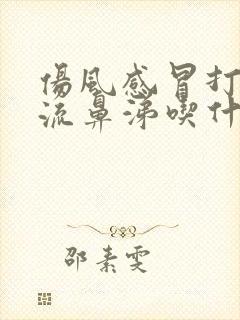 傷風感冒打
流鼻涕喫什
邵素雯